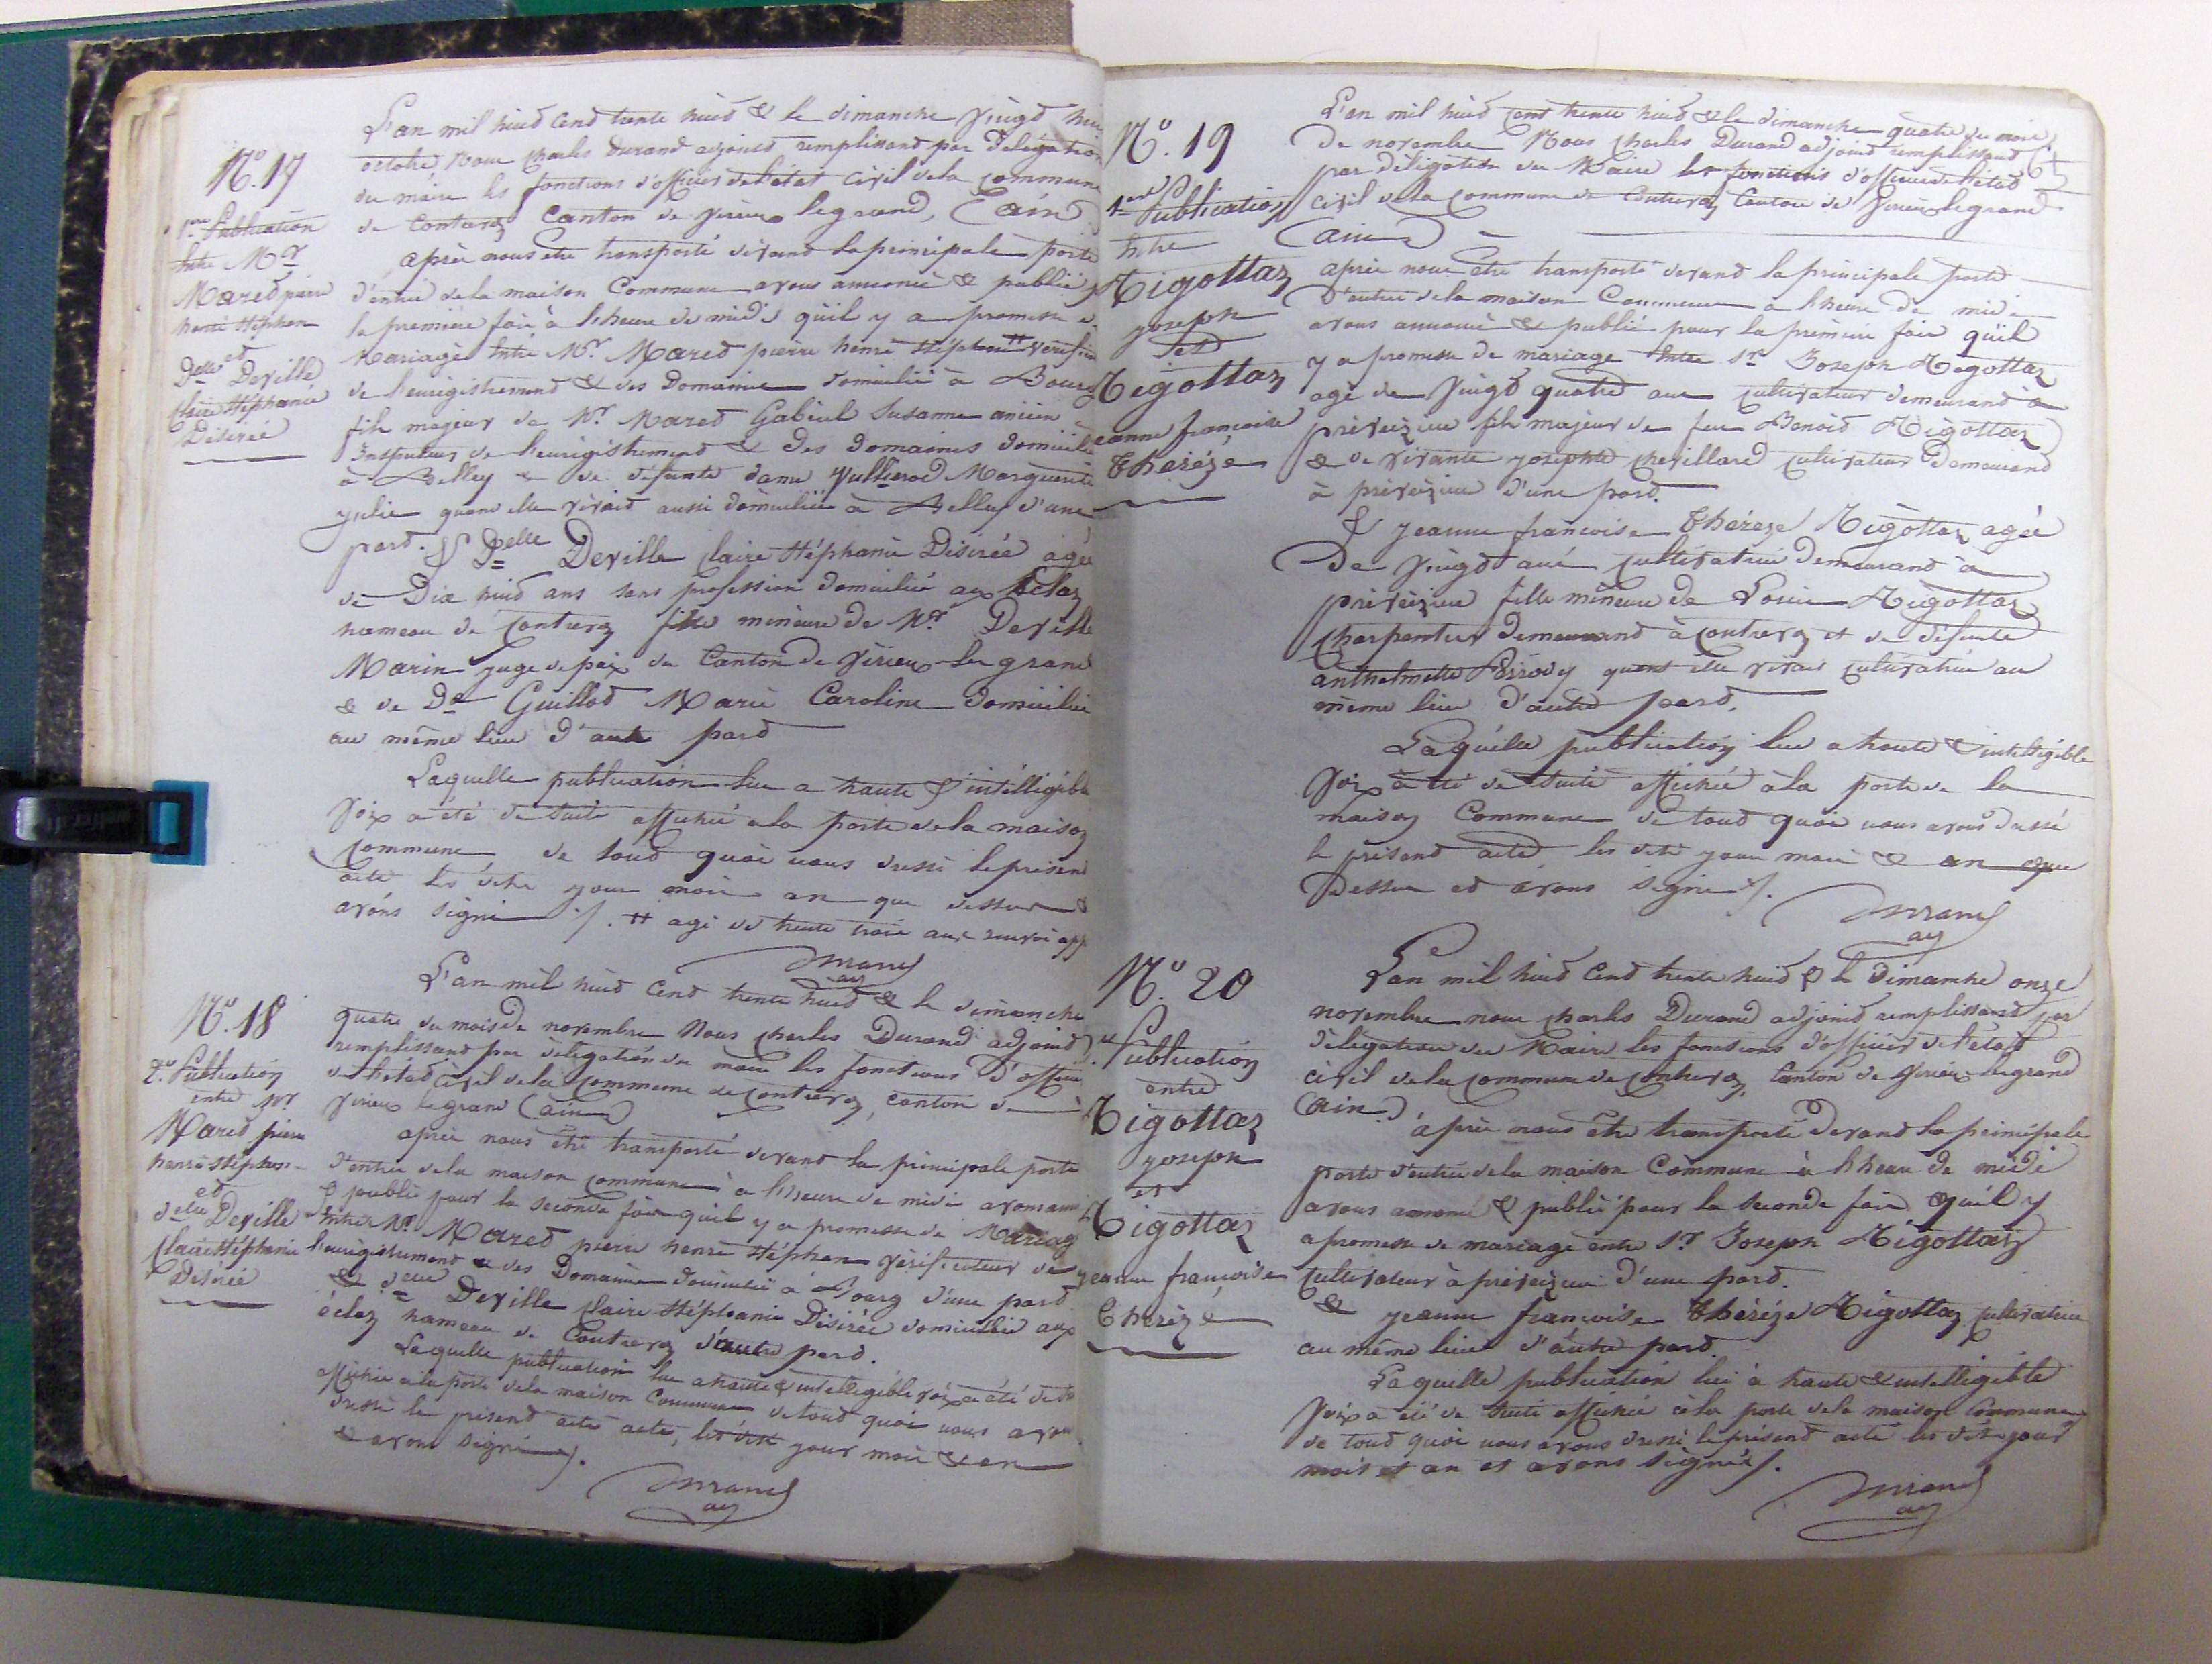 N.º 17
1re Publication
Entre Mr
Mared pierre
henri stéphen
et
Delle Deville
Claire Stéphanie
Désirée
L'an mil huid Cend trente huid & le dimanche Vingd hui
octobre, Nous Charles Durand adjoind remplissand par Délégation
du maire les fonctions d'officier de l'état civil de la commune
de Contrevoz Canton de Virieu legrand, (ain)
après nous etre transporté devand la principale porte
d'entrée de la maison Commune avons annoncé & publié p
la première fois à l'heure de midi qu'il y a promesse de
Mariage Entre Mr. Mared pierre henri stéphen # vérifica
de l'enrégistremend & des Domaines domicilié à Bourg
fils majeur de Mr. Mared Gabriel Susanne ancien
Inspecteur de l'enrégistremend & des domaines domicilié
à Belley & de défunte dame Vullierod Marguerite
yulie quand elle vivait aussi domiciliée à Belley d'une
pard. & Delle Deville Claire Stéphanie Désirée agée
de Dix huid ans sans profession domiciliée aux Eclaz
hameau de Contrevoz fille mineure de Mr. Deville
Marin juge de paix du Canton de Virieu le grand
& de De Guillod Marie Caroline domiciliée
au même lieu d'autre pard
Laquelle publication lue a haute & intélligible
Voix a été de suite affichée a la porte de la maison
Commune de toud quoi nous dressé le présend
acte les dits jour mois an que dessus &
avons signé /. # agé de trente trois ans renvoi app
Durand
adj
N.º 18
2e Publication
entre Mr
Mared pierre
henri stéphen
et
delle Deville
Claire Stéphanie
Désirée
L'an mil huid Cend trente huid & le dimanche
quatre du mois de novembre Nous Charles Durand adjoind
remplissand par délégation du maire les fonctions d'officier
de l'étad civil de la Commune de Contrevoz, canton de
Virieu legrand (ain)
après nous être transporté devand la principale porte
d'entrée de la maison commune à l'heure de midi avons ann
& publié pour la seconde fois qu'il y a promesse de Mariag
Entre Mr. Mared pierre henri stéphen vérificateur de
l'enrégistremend & des Domaines domicilié à Bourg d'une pard
& delle Deville Claire Stéphanie Désirée domiciliée aux
éclaz hameau de Contrevoz d'autre pard.
Laquelle publication lue a haute & intelligible voix a été de s
affichée a la porte de la maison Commune de toud quoi nous avon
dressé le présend acte acte, les dits jour mois & an
& avons signé /.
Durand
adj
N.º 19
1ere Publication
Entre
Tigottaz
joseph
et
Tigottaz
jeanne françoise
Thérèze
L'an mil huid cent trente huid & le dimanche quatre du mois
de novembre Nous Charles Durand adjoind remplissand
par déligation du Maire les fonctions d'officier de l'état
civil de la Commune de Contrevoz Canton de Virieu legrand
(ain)
après nous être transporté devand la principale porte
d'entrée de la maison Commune a l'heure de midi
avons annoncé & publié pour la première fois qu'il
y a promesse de mariage Entre Sr Joseph Tigottaz
agé de Vingd quatre ans cultivateur demeurand à
preveizieu fils majeur de feu Benoid Tigottaz
& de vivante josephte chevillard cultivateur Demeurand
à prèveizieu d'une pard.
& jeanne francoise Thérèze Tigottaz agée
De Vingd ans cultivatrice Demeurand à
prèveizieu fille mineure de Louis Tigottaz
Charpentier Demeurand à Contrevoz et de défunte
anthelmette Perrody quand elle vivais cultivatrice au
même lieu d'autre pard.
Laquelle publication lue a haute & intelligible
Voix a été de suite affichée a la porte de la
maison Commune de toud quoi nous avons dressé
le présend acte les dits jour mois & an que
Dessus et avons signé /.
Durand
adj
N.º 20
2e Publication
entre
Tigottaz
joseph
et
Tigottaz
jeanne françoise
Thérèze
L'an mil huid Cend trente huid & le Dimanche onze
novembre nous Charles Durand adjoind remplissand par
délégation du Maire les fonctions d'officier de l'état
civil de la Commune de Contrevoz, Canton de Virieu legrand
(ain)
après nous être transporté Devand la principale
porte d'entrée de la maison Commune à l'heure de midi
avons annoncé & publié pour la seconde fois qu'il y
a promesse de mariage entre Sr Joseph Tigottaz
Cultivateur à preveizieu d'une pard.
& jeanne françoise Thérèze Tigottaz cultivatrice
au même lieu d'autre pard.
Laquelle publication lue à haute & intelligible
Voix a été de suite affichée à la porte de la maison Commune
de toud quoi nous avons dressé le présend acte les dits jour
mois et an et avons signé /.
Durand
adj